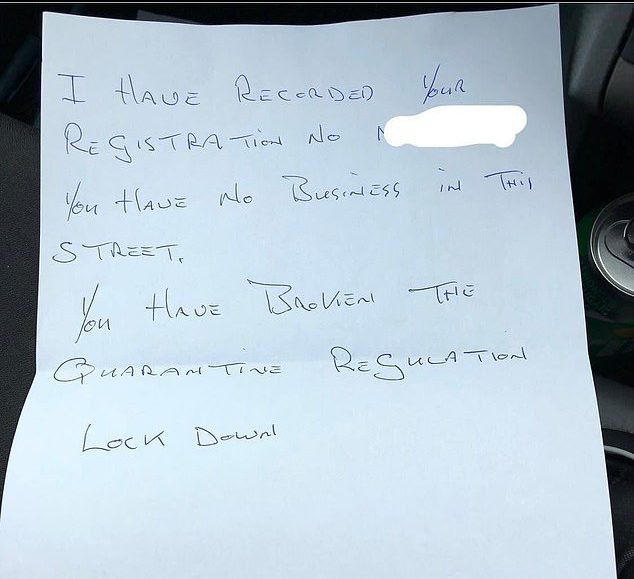 I HAVE RECORDED YOUR
REGISTRATION NO
YOU HAVE NO BUSINESS IN THIS
STREET.
YOU HAVE BROKEN THE
QUARANTINE REGULATION
LOCK DOWN